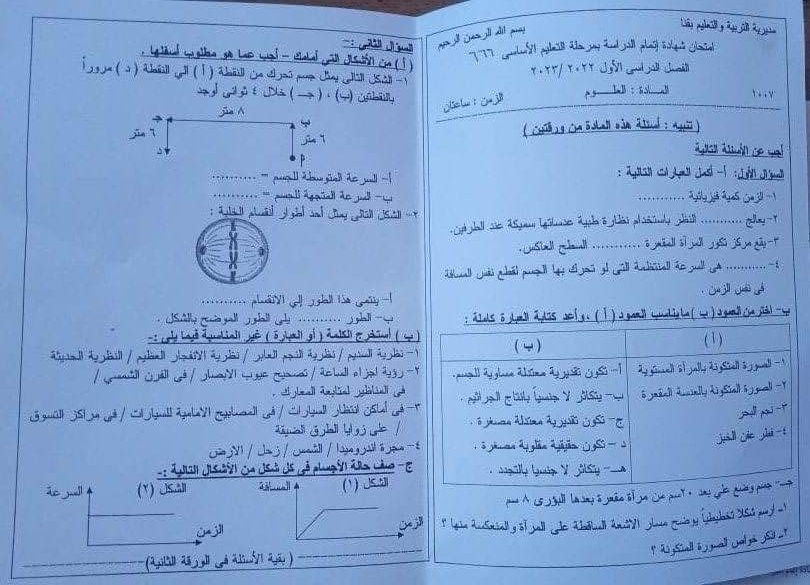 مديرية التربية والتعليم بقنا
بسم الله الرحمن الرحيم
امتحان شهادة إتمام الدراسة بمرحلة التعليم الأساسى ٦٦٦
الفصل الدراسى الأول ٢٠٢٢ /٢٠٢٣
١٠٠٧
المــادة : العلــــوم
الزمن : ساعتان
( تنبيه : أسئلة هذه المادة من ورقتين )
أجب عن الأسئلة التالية
السؤال الأول: أ- أكمل العبارات التالية :
١- الزمن كمية فيزيائية ............
٢- يعالج ........... النظر باستخدام نظارة طبية عدساتها سميكة عند الطرفين.
٣- يقع مركز تكور المرآة المقعرة ........... السطح العاكس.
٤- ........... هى السرعة المنتظمة التى لو تحرك بها الجسم لقطع نفس المسافة
فى نفس الزمن .
ب- اختر من العمود ( ب ) ما يناسب العمود ( أ ) ، وأعد كتابة العبارة كاملة :
( أ )
( ب )
١- الصورة المتكونة بالمرآة المستوية
أ- تكون تقديرية معتدلة مساوية للجسم.
٢- الصورة المتكونة بالعدسة المقعرة
ب- يتكاثر لا جنسياً بانتاج الجراثيم .
٣- نجم البحر
ج- تكون تقديرية معتدلة مصغرة .
٤- فطر عفن الخبز
د - تكون حقيقية مقلوبة مصغرة .
هـ- يتكاثر لا جنسيا بالتجدد .
جـ- جسم وضع علي بعد ٢٠سم من مرآة مقعرة بعدها البؤرى ٨ سم
١- أرسم شكلا تخطيطياً يوضح مسار الاشعة الساقطة على المرآة والمنعكسة منها ؟
٢- اذكر خواص الصورة المتكونة ؟
السؤال الثانى :-
( أ ) من الأشكال التي أمامك – أجب عما هو مطلوب أسفلها .
١- الشكل التالى يمثل جسم تحرك من النقطة ( أ ) الي النقطة ( د ) مروراً
بالنقطتين (ب) ، ( جـ ) خلال ٤ ثوانى أوجد
جـ
٨ متر
ب
٦ متر
د
٦ متر
أ
أ- السرعة المتوسطة للجسم = ..........
ب- السرعة المتجهة للجسم = ..........
٢- الشكل التالى يمثل أحد أطوار أنقسام الخلية :
أ- ينتمى هذا الطور إلي الانقسام ..........
ب- الطور .......... يلى الطور الموضح بالشكل .
( ب ) أستخرج الكلمة ( أو العبارة ) غير المناسبة فيما يلى :-
١- نظرية السديم / نظرية النجم العابر / نظرية الانفجار العظيم / النظرية الحديثة
٢- رؤية اجزاء الساعة / تصحيح عيوب الابصار / فى الفرن الشمسي /
فى المناظير لمتابعة المعارك .
٣- فى أماكن انتظار السيارات / فى المصابيح الامامية للسيارات / فى مراكز التسوق
/ على زوايا الطرق الضيقة
٤- مجرة اندروميدا / الشمس / زحل / الارض
ج- صف حالة الأجسام فى كل شكل من الأشكال التالية :-
المسافة
الشكل (١)
الزمن
السرعة
الشكل (٢)
الزمن
( بقية الأسئلة فى الورقة الثانية)